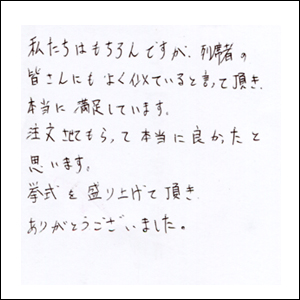 私たちはもちろんですが、列席者の
皆さんにもよく似ていると言って頂き、
本当に満足しています。
注文させてもらって本当に良かったと
思います。
挙式を盛り上げて頂き
ありがとうございました。